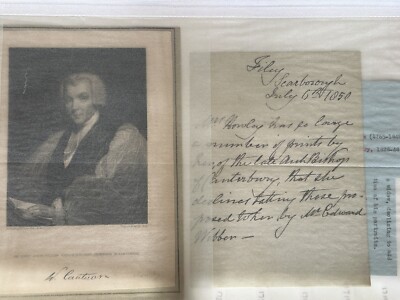 W. Cantuar
Filey
Scarborough
July 6th 1850
Mrs Howley has so large
a number of prints by
her of the late Archbishop
of Canterbury, that she
declines taking those pro-
posed to her by Mr Edward
a widow, daughter to